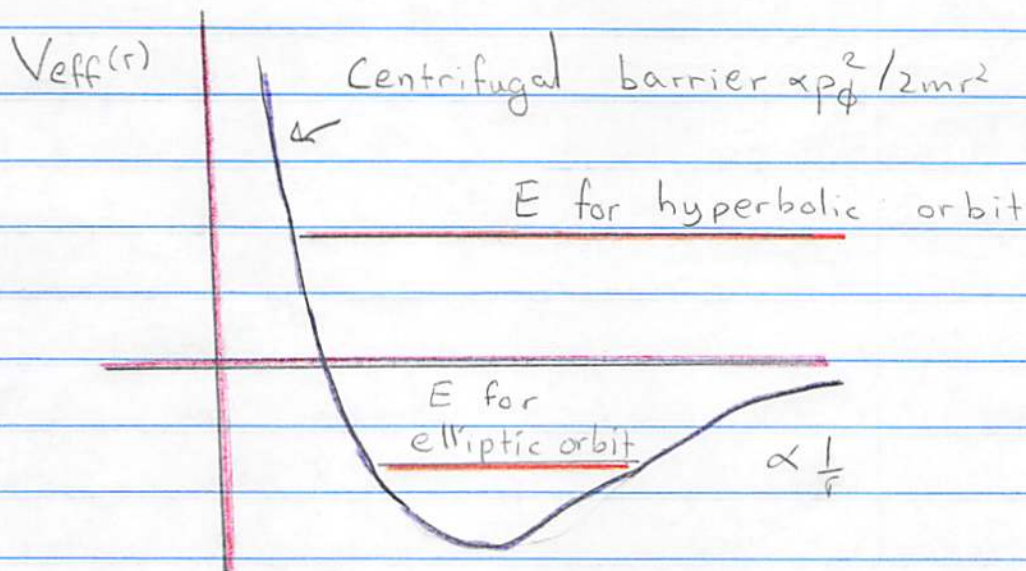 Veff(r)
Centrifugal barrier ∝pϕ²/2mr²
E for hyperbolic orbit
E for
elliptic orbit
∝ 1/r